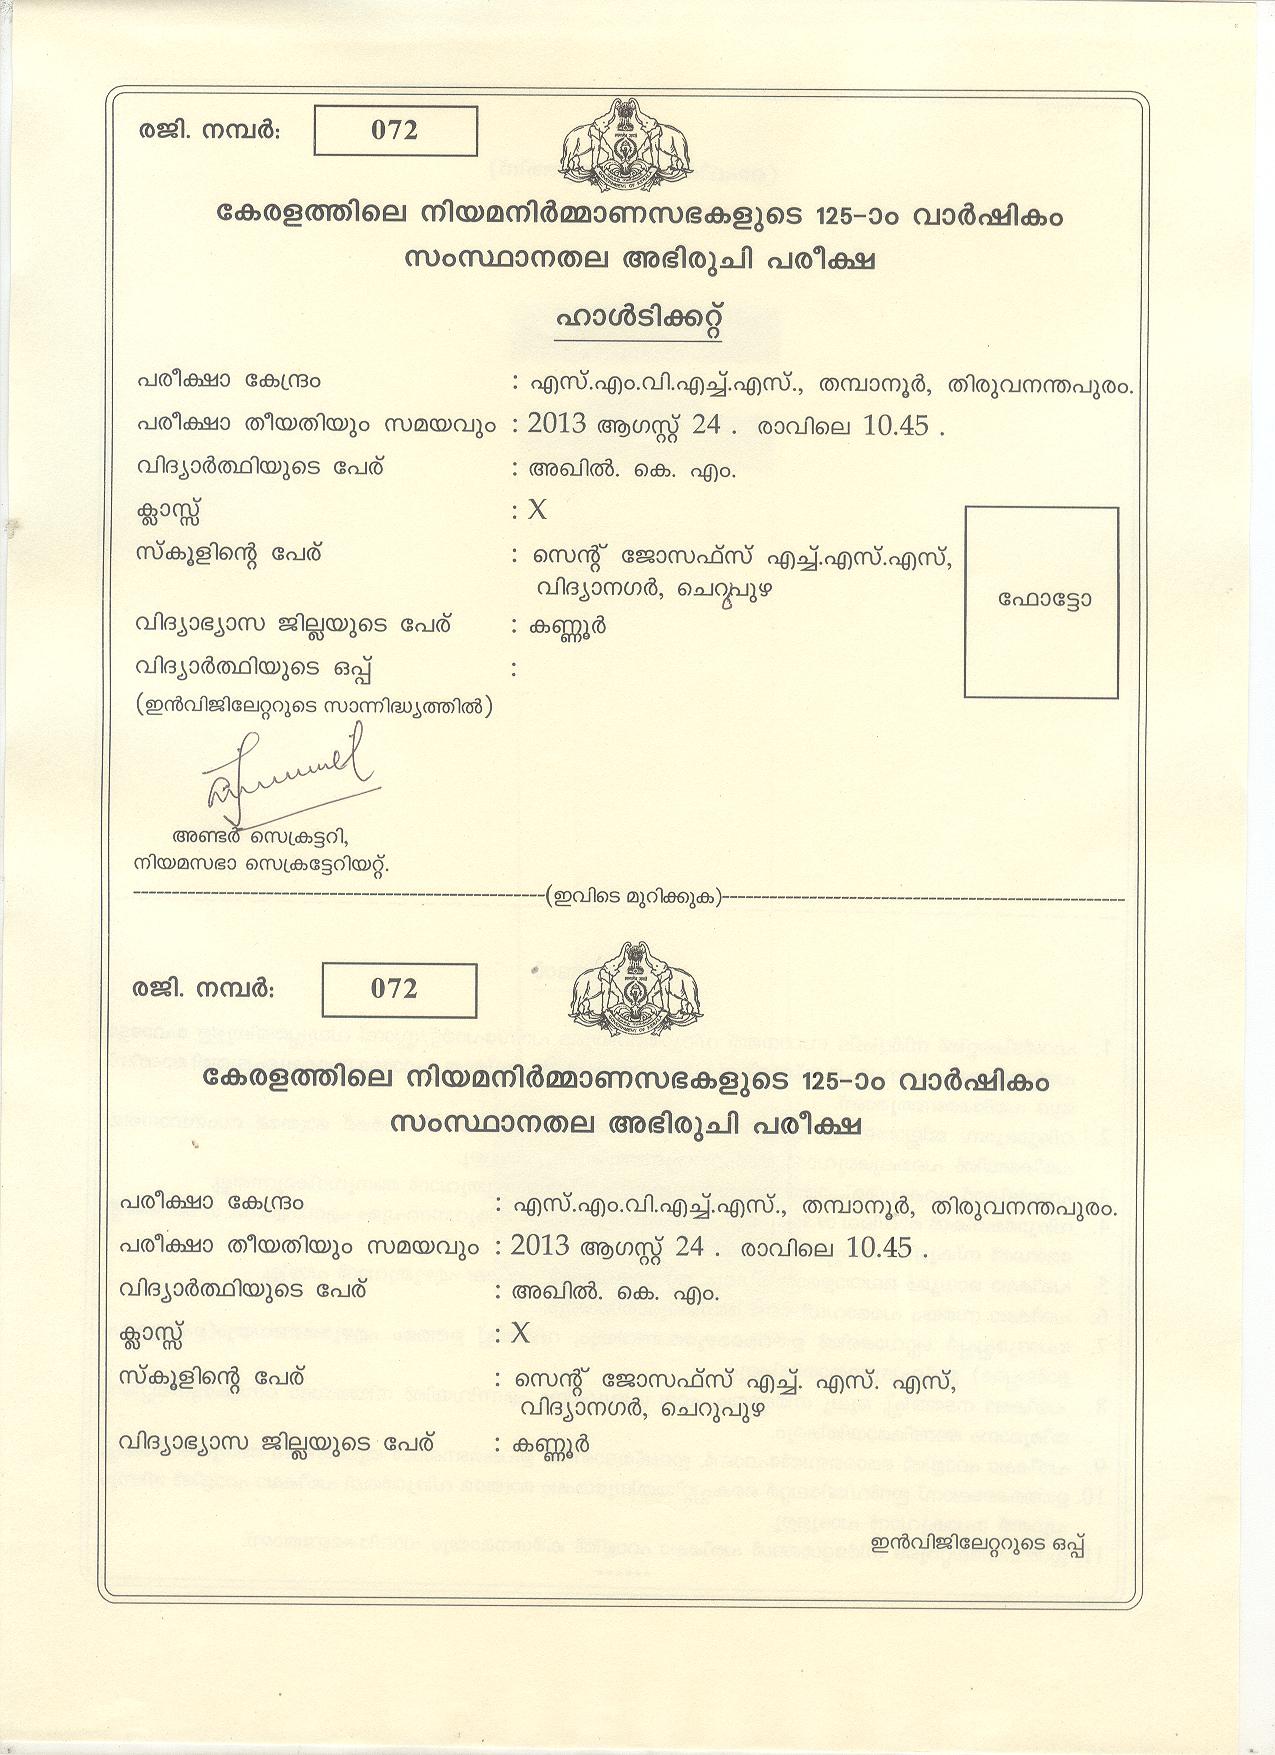 രജി. നമ്പർ: 072
കേരളത്തിലെ നിയമനിർമ്മാണസഭകളുടെ 125-ാം വാർഷികം
സംസ്ഥാനതല അഭിരുചി പരീക്ഷ
ഹാൾടിക്കറ്റ്
പരീക്ഷാ കേന്ദ്രം : എസ്.എം.വി.എച്ച്.എസ്., തമ്പാനൂർ, തിരുവനന്തപുരം.
പരീക്ഷാ തീയതിയും സമയവും : 2013 ആഗസ്റ്റ് 24 . രാവിലെ 10.45 .
വിദ്യാർത്ഥിയുടെ പേര് : അഖിൽ. കെ. എം.
ക്ലാസ്സ് : X
സ്കൂളിന്റെ പേര് : സെന്റ് ജോസഫ്സ് എച്ച്.എസ്.എസ്,
വിദ്യാനഗർ, ചെറുപുഴ
ഫോട്ടോ
വിദ്യാഭ്യാസ ജില്ലയുടെ പേര് : കണ്ണൂർ
വിദ്യാർത്ഥിയുടെ ഒപ്പ് :
(ഇൻവിജിലേറ്ററുടെ സാന്നിദ്ധ്യത്തിൽ)
അണ്ടർ സെക്രട്ടറി,
നിയമസഭാ സെക്രട്ടേറിയറ്റ്.
(ഇവിടെ മുറിക്കുക)
രജി. നമ്പർ: 072
കേരളത്തിലെ നിയമനിർമ്മാണസഭകളുടെ 125-ാം വാർഷികം
സംസ്ഥാനതല അഭിരുചി പരീക്ഷ
പരീക്ഷാ കേന്ദ്രം : എസ്.എം.വി.എച്ച്.എസ്., തമ്പാനൂർ, തിരുവനന്തപുരം.
പരീക്ഷാ തീയതിയും സമയവും : 2013 ആഗസ്റ്റ് 24 . രാവിലെ 10.45 .
വിദ്യാർത്ഥിയുടെ പേര് : അഖിൽ. കെ. എം.
ക്ലാസ്സ് : X
സ്കൂളിന്റെ പേര് : സെന്റ് ജോസഫ്സ് എച്ച്. എസ്. എസ്,
വിദ്യാനഗർ, ചെറുപുഴ
വിദ്യാഭ്യാസ ജില്ലയുടെ പേര് : കണ്ണൂർ
ഇൻവിജിലേറ്ററുടെ ഒപ്പ്